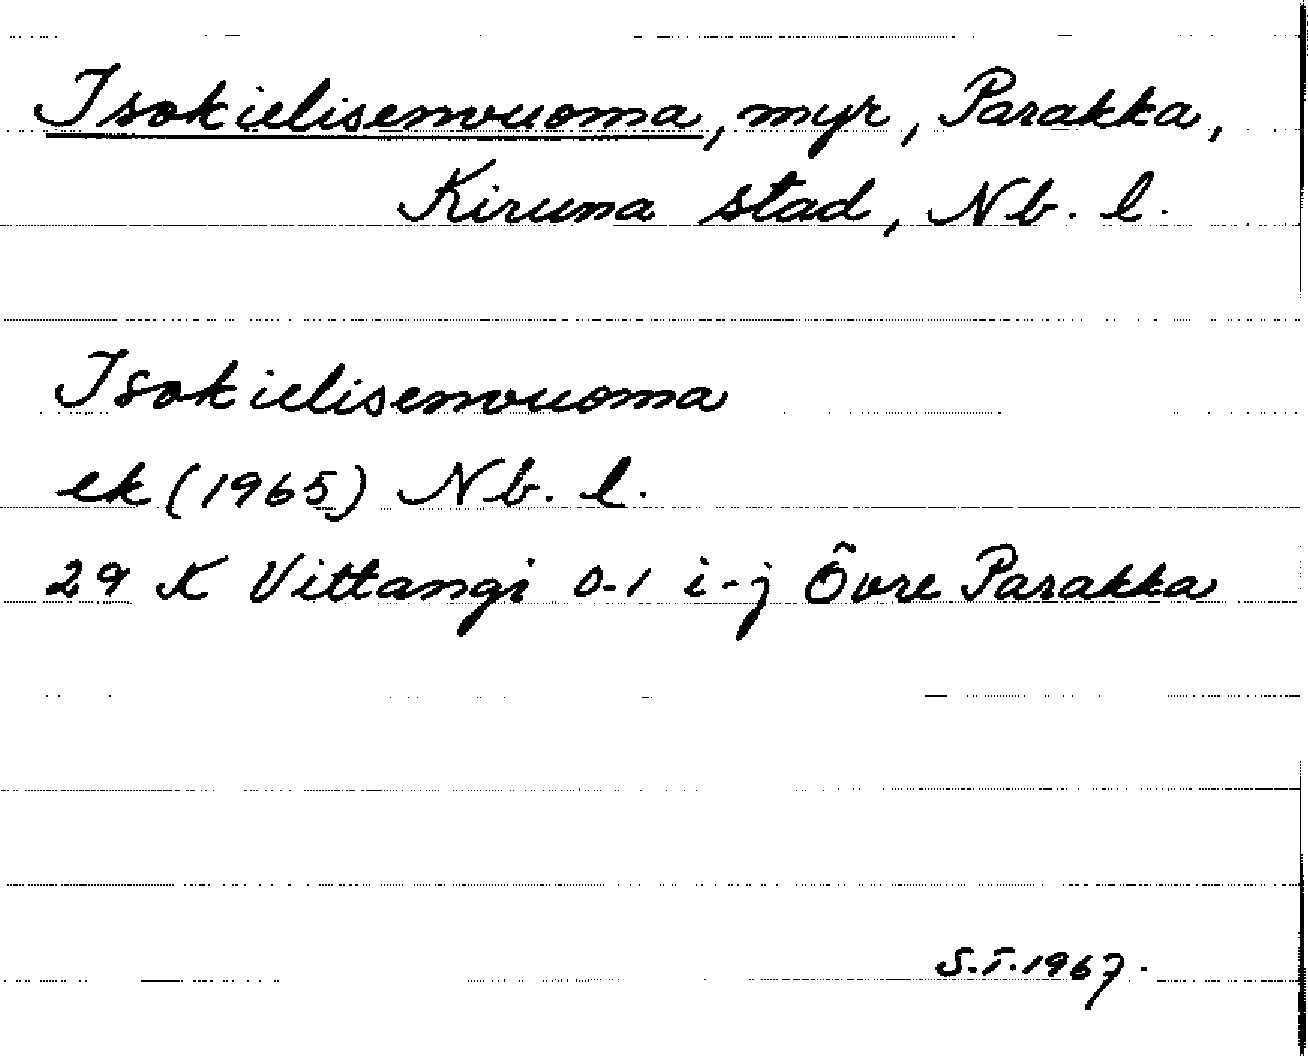 Isokielisenvuoma, myr, Parakka,
Kiruna stad, Nb. l.
Isokielisenvuoma
ek (1965) Nb. l.
29 K Vittangi 0-1 i-j Övre Parakka
S.T. 1967.